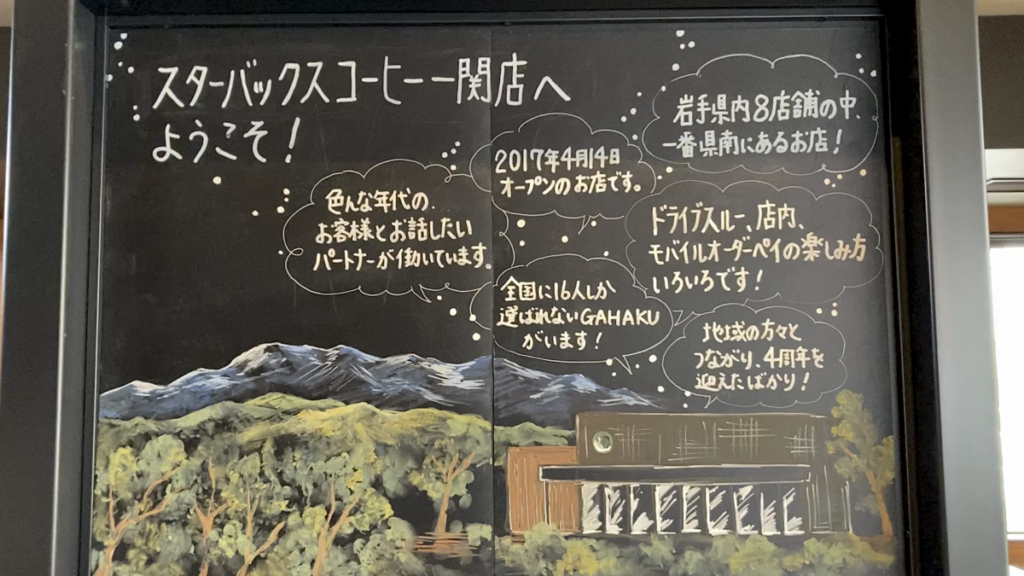 スターバックスコーヒー一関店へ
ようこそ！
岩手県内8店舗の中、
一番県南にあるお店！
2017年4月14日
オープンのお店です。
色んな年代の、
お客様とお話したい
パートナーが働いています。
ドライブスルー、店内、
モバイルオーダーペイの楽しみ方
いろいろです！
全国に16人しか
選ばれないGAHAKU
がいます！
地域の方々と
つながり、4周年を
迎えたばかり！